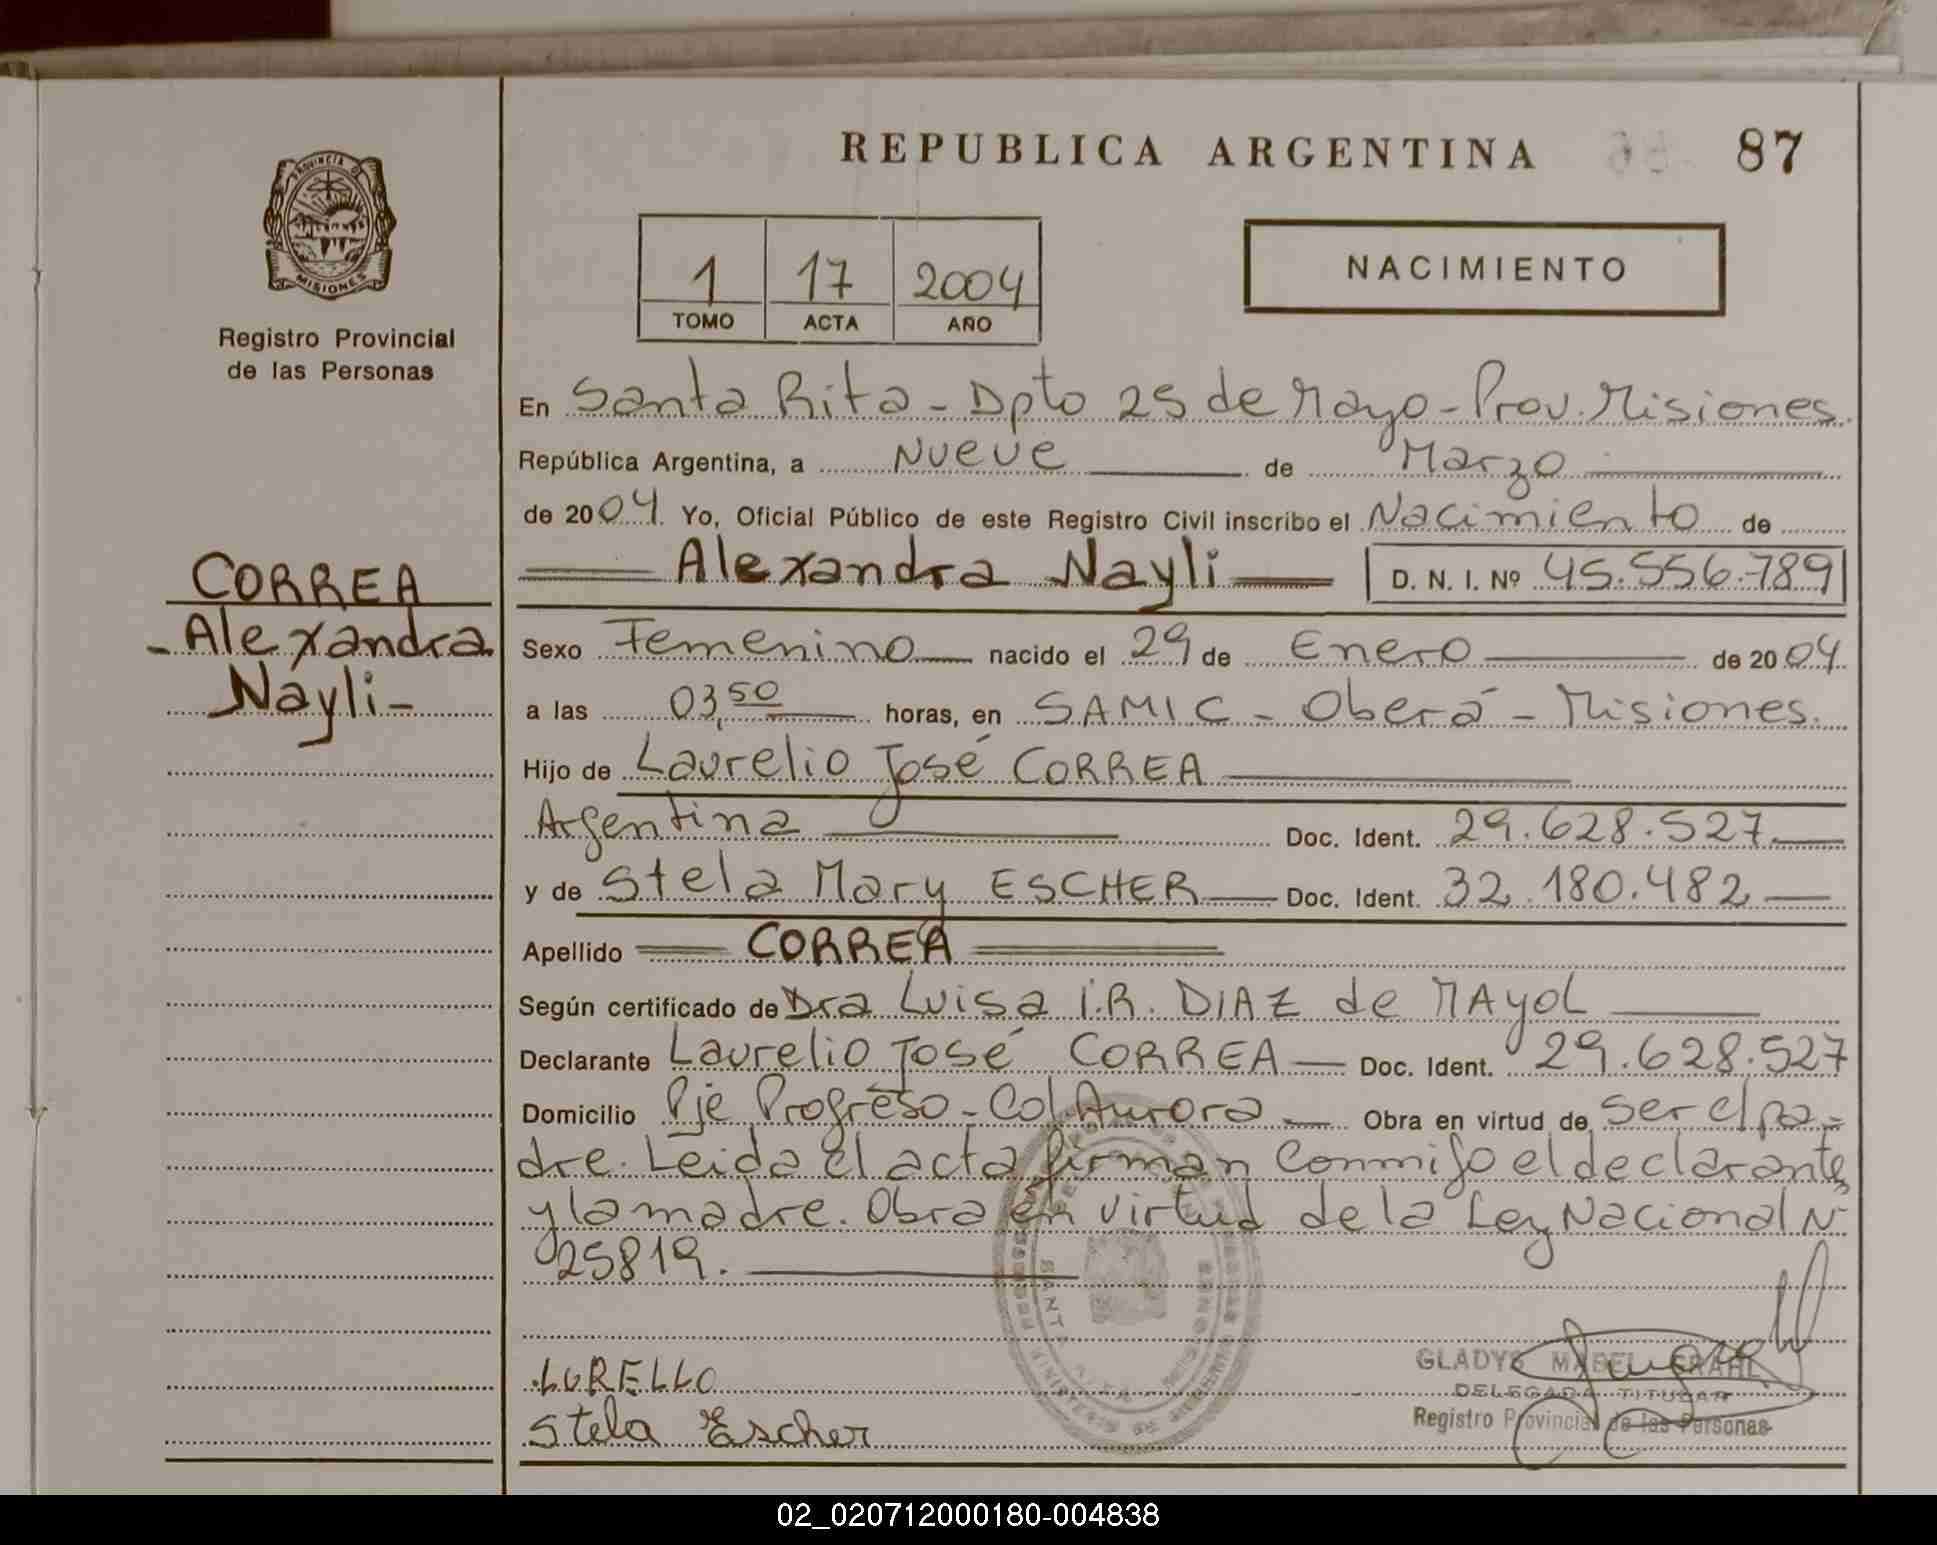 REPUBLICA ARGENTINA 87
PROVINCIA DE
MISIONES
Registro Provincial
de las Personas
1 17 2004
TOMO ACTA AÑO
NACIMIENTO
En Santa Rita - Dpto 25 de Mayo - Prov. Misiones.
República Argentina, a Nueve de Marzo
de 2004. Yo, Oficial Público de este Registro Civil inscribo el Nacimiento de
Alexandra Nayli D. N. I. Nº 45.556.789
CORREA
- Alexandra
Nayli -
Sexo Femenino nacido el 29 de Enero de 2004
a las 03,50 horas, en SAMIC - Oberá - Misiones.
Hijo de Laurelio José CORREA
Argentina Doc. Ident. 29.628.527.
y de Stela Mary ESCHER Doc. Ident. 32.180.482
Apellido CORREA
Según certificado de Dra Luisa I.R. DIAZ de MAyOL
Declarante Laurelio José CORREA Doc. Ident. 29.628.527
Domicilio Pje Progreso - Col Aurora Obra en virtud de ser el pa-
dre. Leida el acta firman conmigo el declarante
y la madre. Obra en virtud de la Ley Nacional N
25819.
LURELLO
Stela Escher
GLADYS MABEL
DELEGADA TITULAR
Registro Provincial de las Personas
02_020712000180-004838